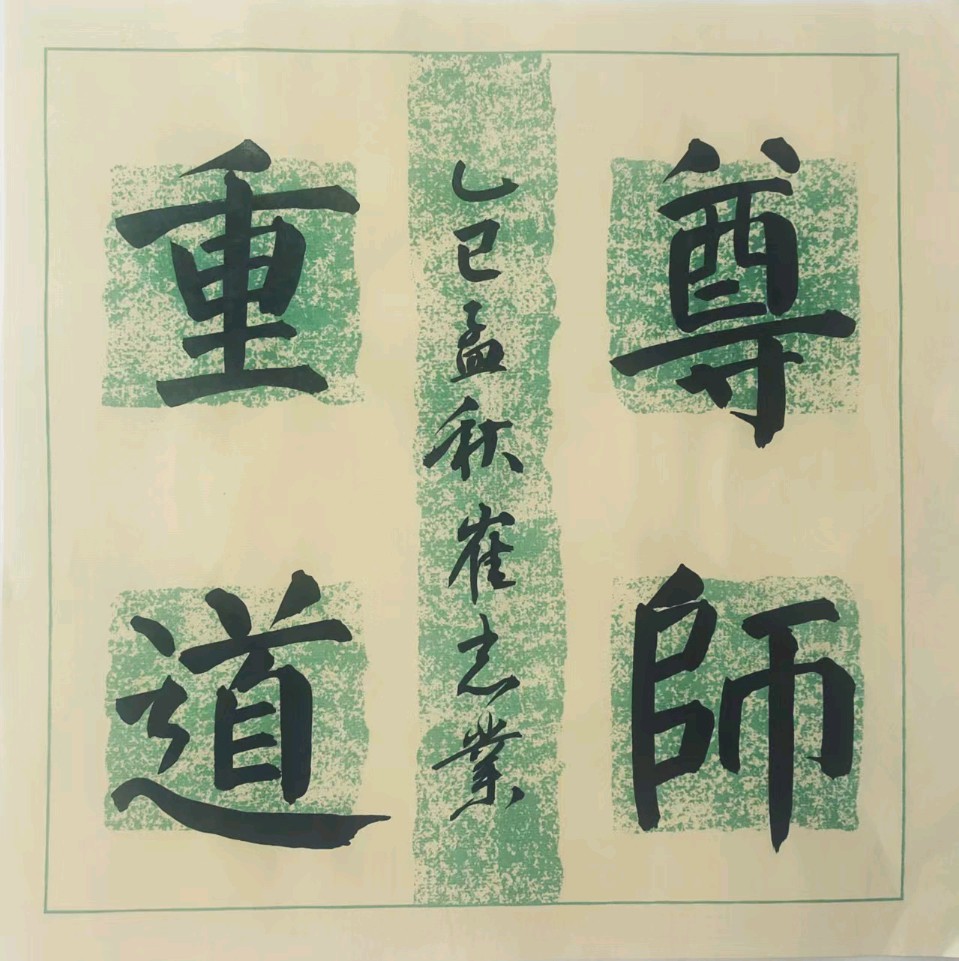 尊師
重道
乙巳孟秋崔志業